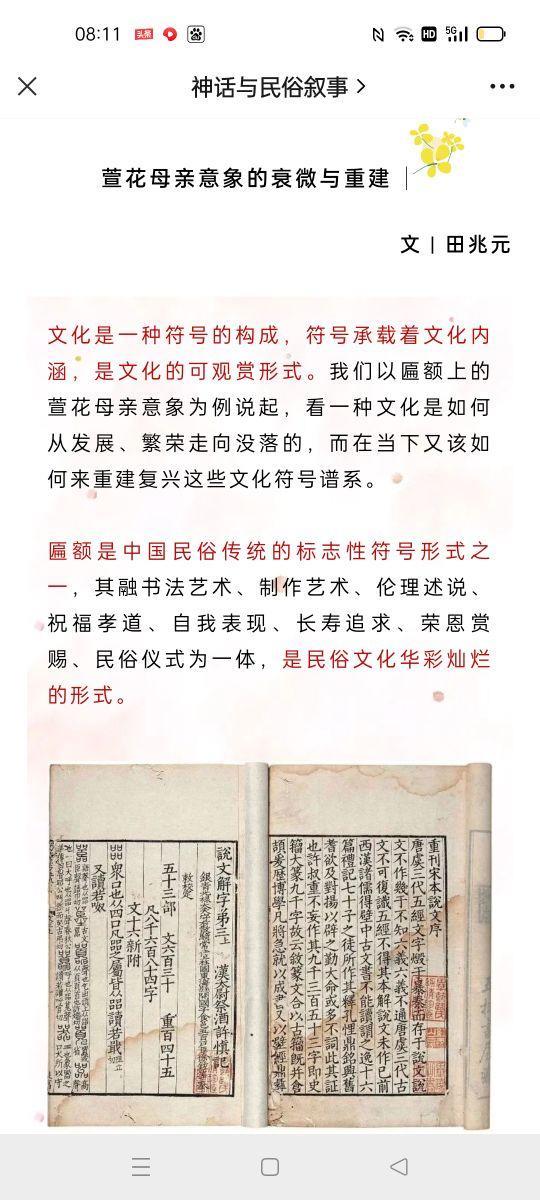 08:11
头条
HD
5G
神话与民俗叙事
萱花母亲意象的衰微与重建
文 | 田兆元
文化是一种符号的构成，符号承载着文化内
涵，是文化的可观赏形式。我们以匾额上的
萱花母亲意象为例说起，看一种文化是如何
从发展、繁荣走向没落的，而在当下又该如
何来重建复兴这些文化符号谱系。
匾额是中国民俗传统的标志性符号形式之
一，其融书法艺术、制作艺术、伦理述说、
祝福孝道、自我表现、长寿追求、荣恩赏
赐、民俗仪式为一体，是民俗文化华彩灿烂
的形式。
重刊宋本說文序
唐虞三代五經文字燬于暴秦而存于說文說
文不作幾于不知六義六義不通唐虞三代古
文不可復識五經不得其本解說文未作已前
西漢諸儒得壁中古文書不能讀謂之逸十六
篇禮記七十子之徒所作其釋孔悝鼎銘興舊
耆欲及對揚以辟之勤大命或多不詞此其證
也許叔重不妄作其九千三百五十三字即史
籀大篆九千字故云敘篆文合以古籀既并倉
說文解字弟三上
漢太尉祭酒許慎記
敕校定
五十三部　文六百三十　重百四十五
凡八千六百八十四字
文十六新附
㗊眾口也从四口凡㗊之屬皆从㗊讀若戢
又讀若呶